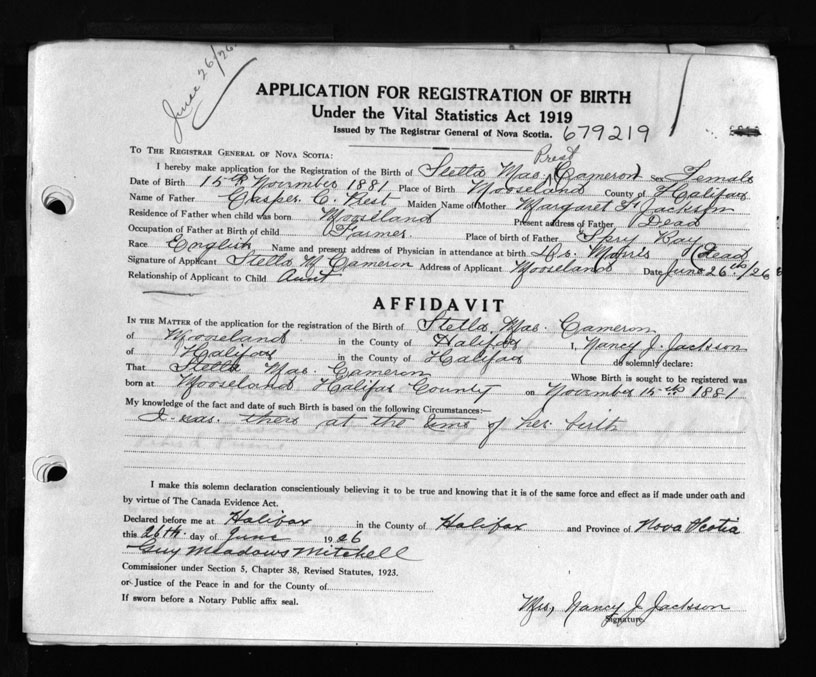 June 26/26
APPLICATION FOR REGISTRATION OF BIRTH
Under the Vital Statistics Act 1919
Issued by The Registrar General of Nova Scotia. 679219
TO THE REGISTRAR GENERAL OF NOVA SCOTIA:
Prest
I hereby make application for the Registration of the Birth of Stella Mae Cameron Sex Female
Date of Birth 15th November 1881 Place of Birth Mooseland County of Halifax
Name of Father Casper C. Prest Maiden Name of Mother Margaret Jackson
Residence of Father when child was born Mooseland Present address of Father Dead
Occupation of Father at Birth of child Farmer Place of birth of Father Spry Bay
Race English Name and present address of Physician in attendance at birth Dr. Morris (Dead
Signature of Applicant Stella M Cameron Address of Applicant Mooseland Date June 26th/26
Relationship of Applicant to Child Aunt
AFFIDAVIT
IN THE MATTER of the application for the registration of the Birth of Stella Mae Cameron
of Mooseland in the County of Halifax I, Nancy J. Jackson
of Halifax in the County of Halifax do solemnly declare:
That Stella Mae Cameron Whose Birth is sought to be registered was
born at Mooseland Halifax County on November 15th 1881
My knowledge of the fact and date of such Birth is based on the following Circumstances:—
I was there at the time of her birth
I make this solemn declaration conscientiously believing it to be true and knowing that it is of the same force and effect as if made under oath and
by virtue of The Canada Evidence Act.
Declared before me at Halifax in the County of Halifax and Province of Nova Scotia
this 26th day of June 1926
Guy Meadows Mitchell
Commissioner under Section 5, Chapter 38, Revised Statutes, 1923.
or Justice of the Peace in and for the County of
If sworn before a Notary Public affix seal.
Mrs, Nancy J Jackson
Signature